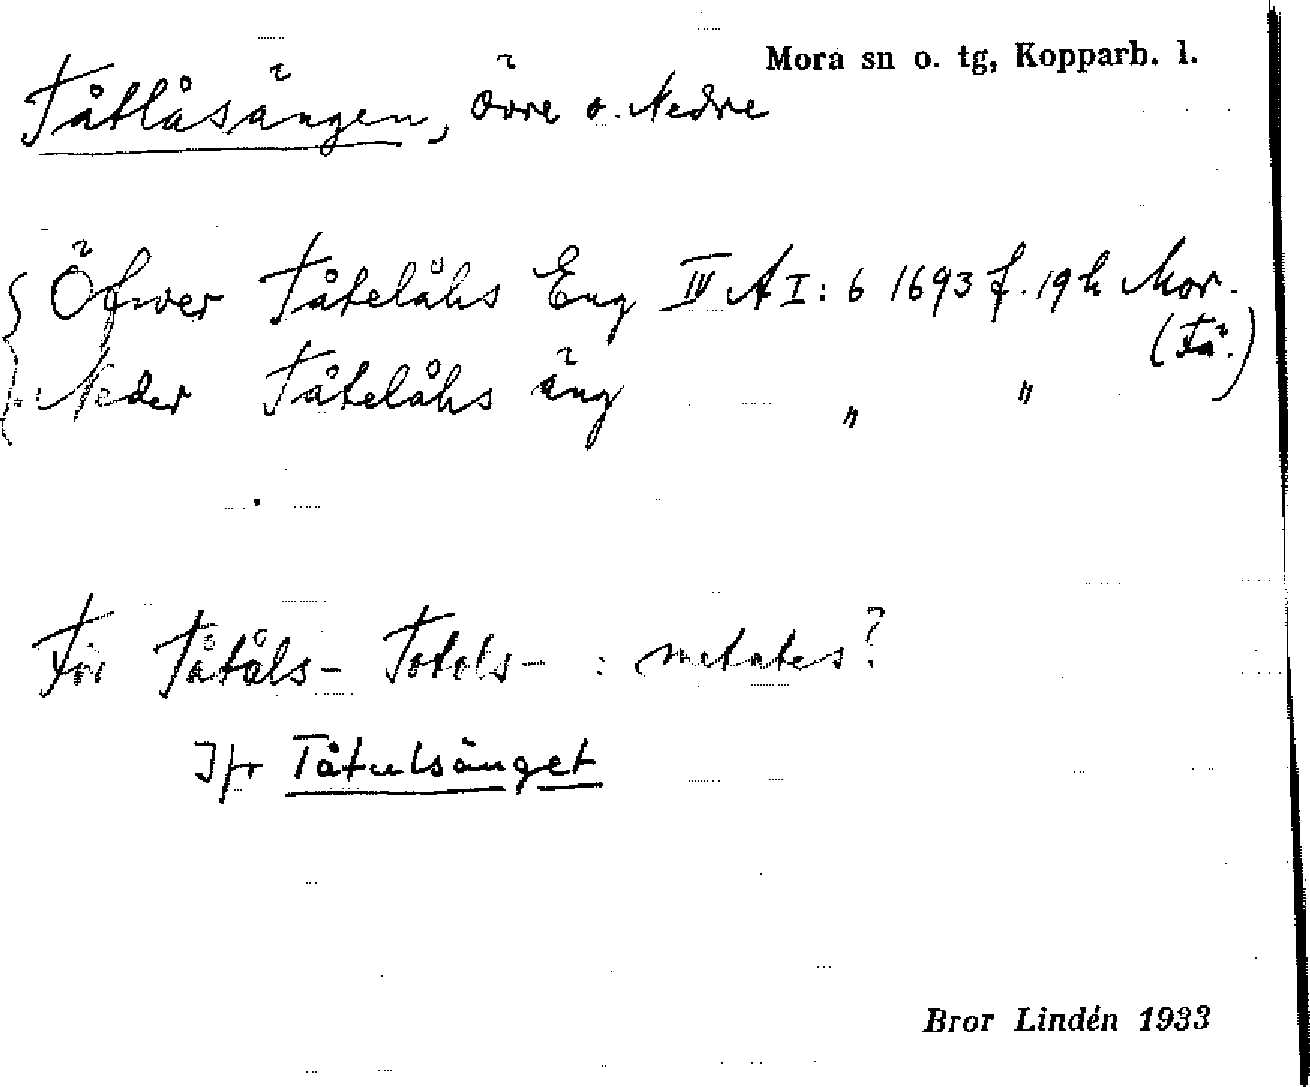 Mora sn o. tg, Kopparb. l.
Tåtlåsängen, Övre o. Nedre
Öfwer Tåtelåhs Eng IV A I: 6 1693 f. 19 h Mor.
(Fä.)
Neder Tåtelåhs äng " "
För Tåtåls- Totols- : metates?
Jfr Tåtulsänget
Bror Lindén 1933